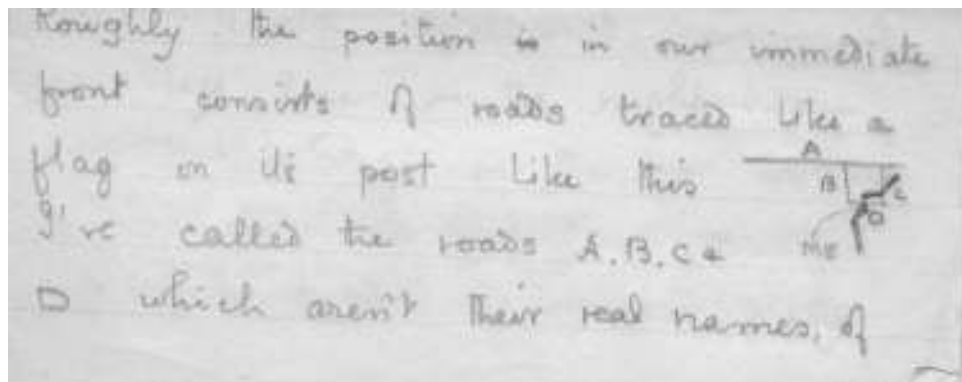 Roughly the position is in our immediate
front consists of roads traced like a
flag on its post like this
A
B
C
D
I've called the roads A. B. C &
ME
D which aren't their real names, of